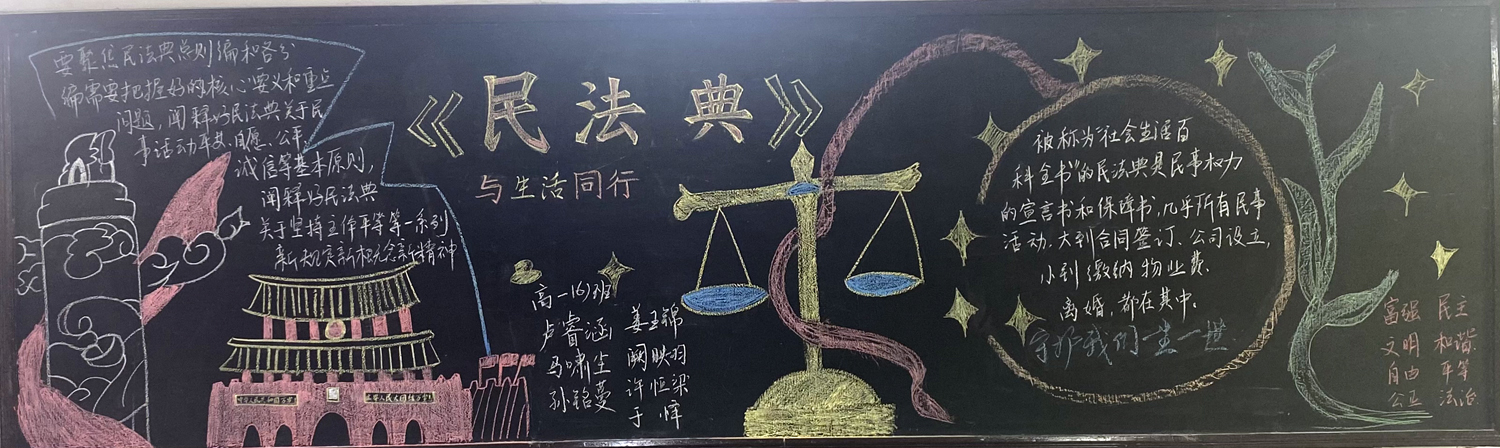 要聚焦民法典总则编和各分
编需要把握好的核心要义和重点
问题,阐释好民法典关于民
事活动平等、自愿、公平、
诚信等基本原则,
阐释好民法典
关于坚持主体平等等一系列
新规定新概念新精神
《民法典》
与生活同行
高一(6)班
卢睿涵 姜玉锦
马啸生 阚映羽
孙铭蔓 许恒梁
于
被称为"社会生活百
科全书"的民法典是民事权力
的宣言书和保障书,几乎所有民事
活动.大到合同签订、公司设立,
小到缴纳物业费、
离婚,都在其中。
守护我们一生一世.
富强 民主
文明 和谐
自由 平等
公正 法治